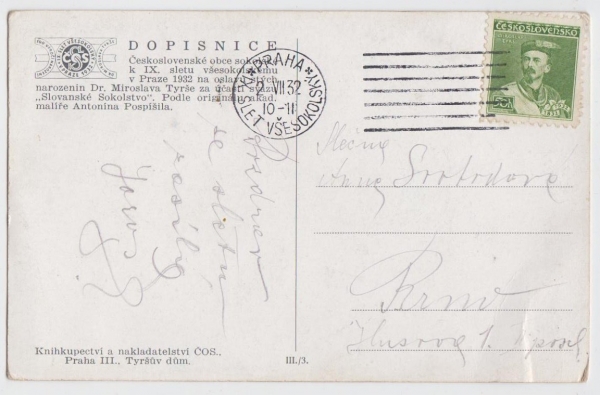 DOPISNICE
Československé obce sokolské
k IX. sletu všesokolskému
v Praze 1932 na oslavu 100tých
narozenin Dr. Miroslava Tyrše za účasti svazu
„Slovanské Sokolstvo“. Podle originálu akad.
malíře Antonína Pospíšila.
ČOS
PRAHA
2.VII 32
10-11
SLET VŠESOKOLSKÝ
ČESKOSLOVENSKO
50h
Pozdrav
ze sletu
zasílá
Jarča
Slečna
Anna Svobodova
Brno
Husova 1.
Knihkupectví a nakladatelství ČOS.,
Praha III., Tyršův dům.
III./3.